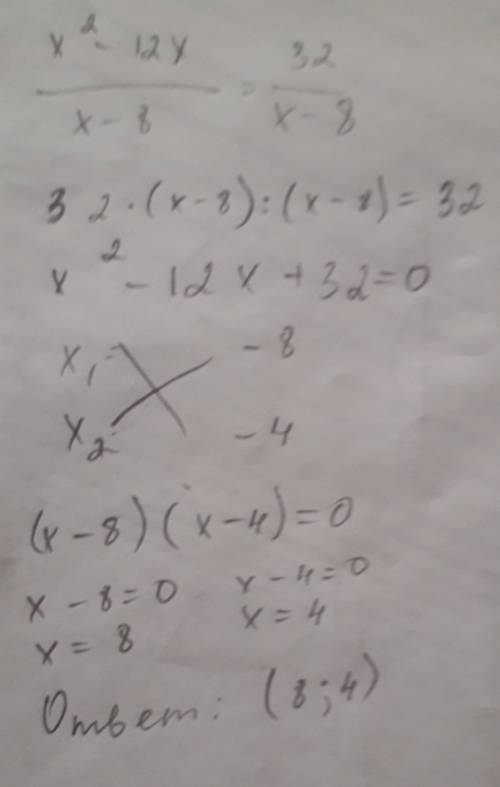 x² - 12x / x - 8 = 32 / x - 8
32 · (x - 8) : (x - 8) = 32
x² - 12x + 32 = 0
x₁ - 8
x₂ - 4
(x - 8) (x - 4) = 0
x - 8 = 0 x - 4 = 0
x = 8 x = 4
Ответ: (8; 4)